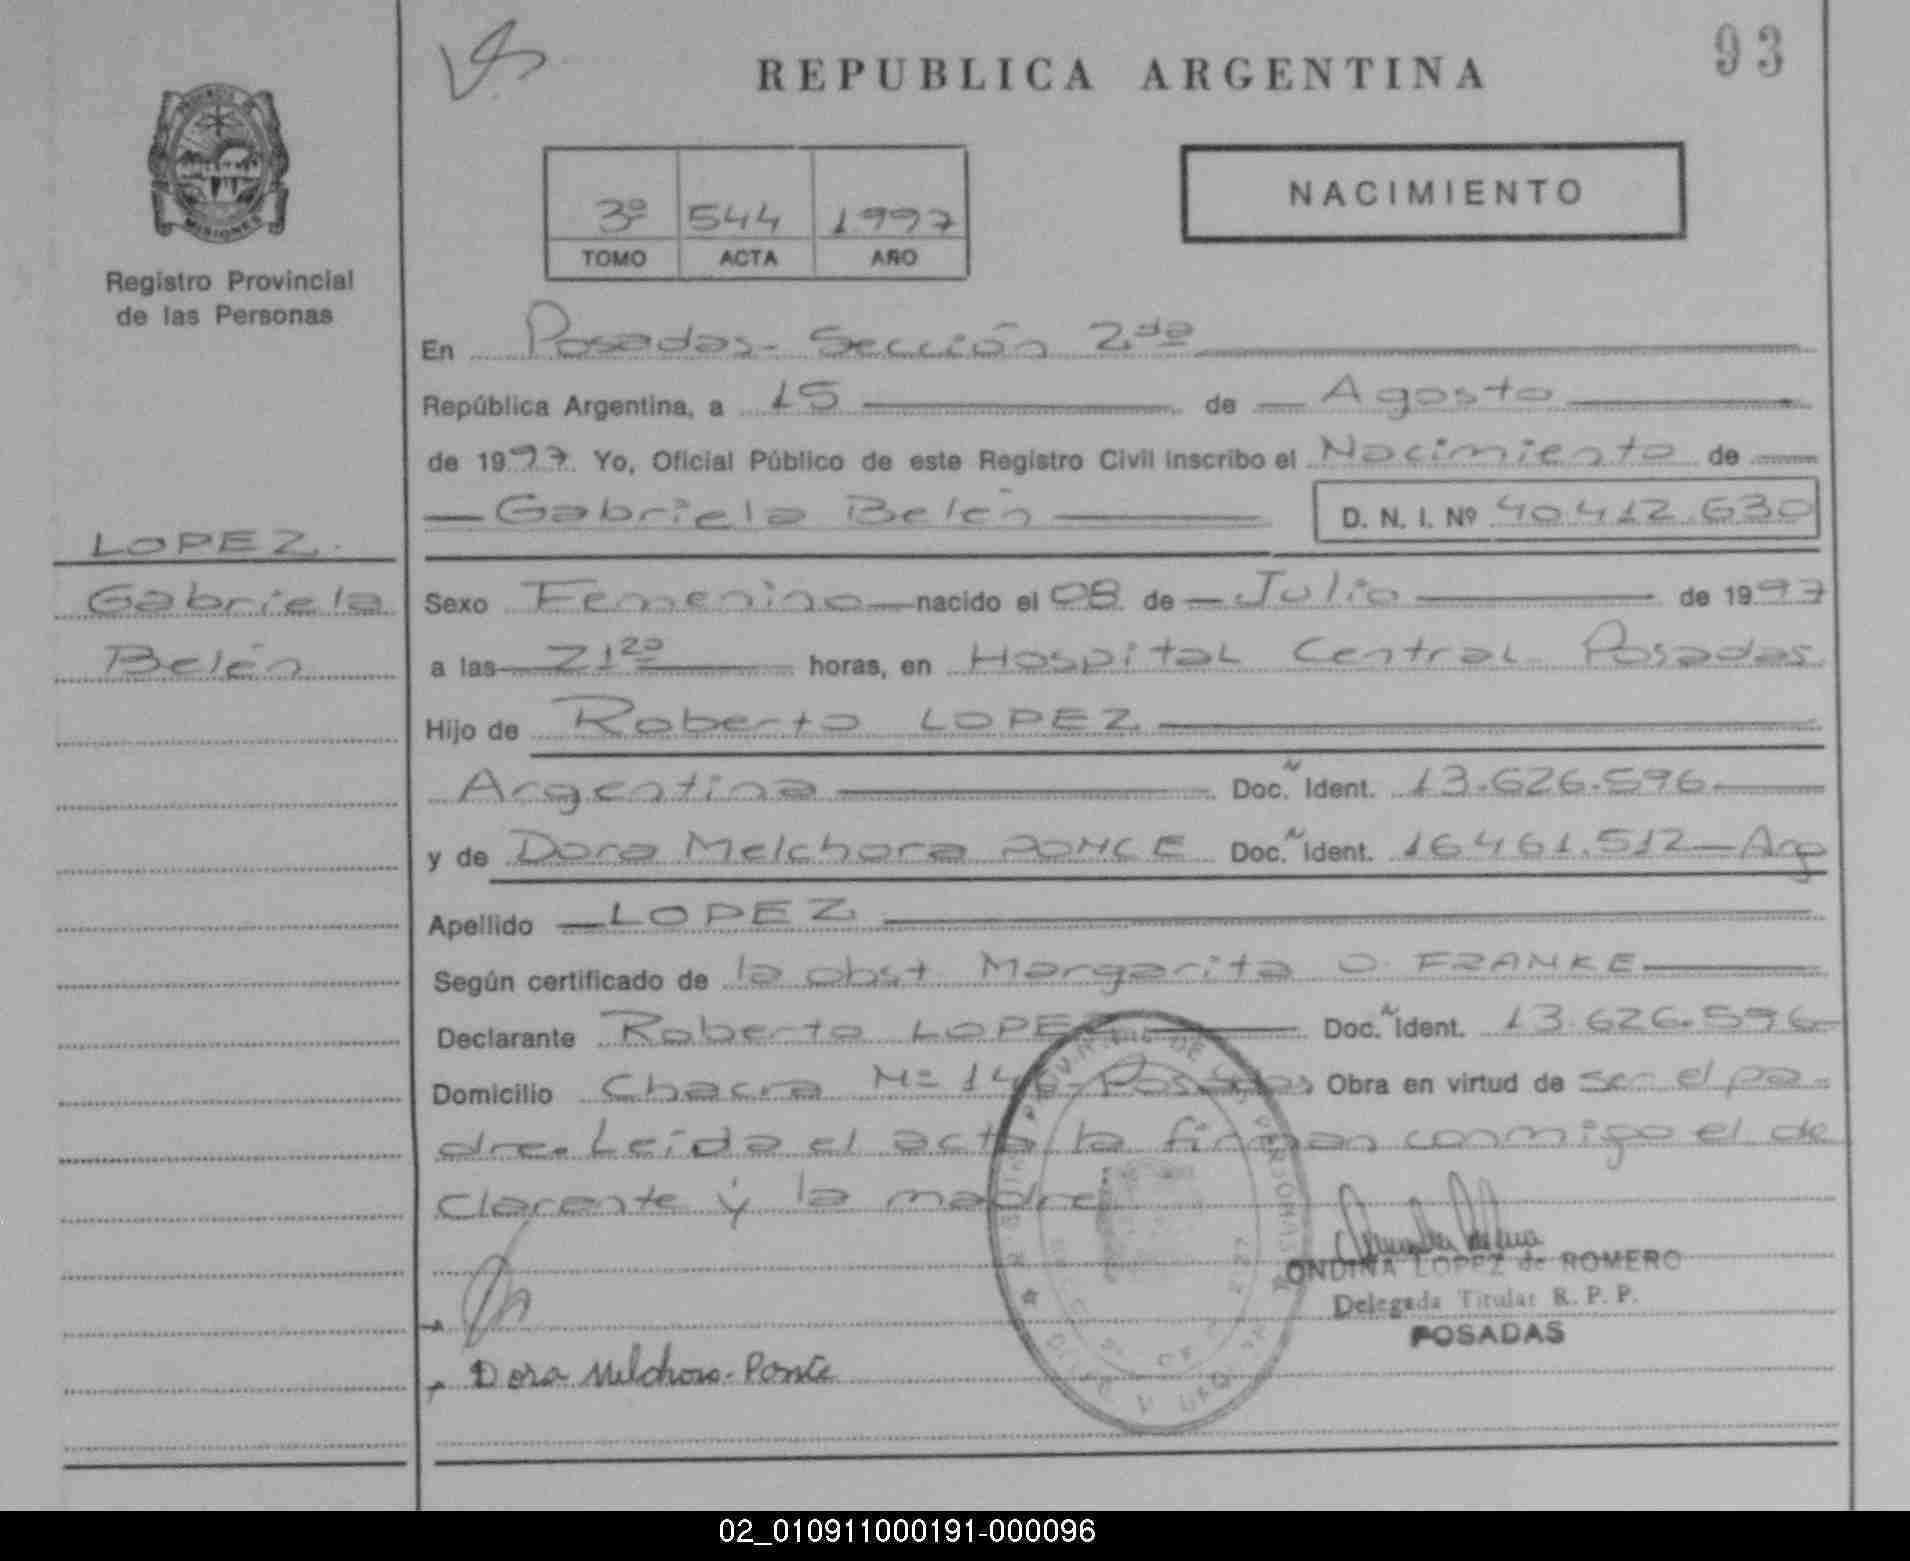 93
REPUBLICA ARGENTINA
PROVINCIA DE
MISIONES
Registro Provincial
de las Personas
3º 544 1997
TOMO ACTA AÑO
NACIMIENTO
En Posadas - Sección 2da
República Argentina, a 15 de Agosto
de 1997. Yo, Oficial Público de este Registro Civil inscribo el Nacimiento de
Gabriela Belén D. N. I. Nº 40.412.630
LOPEZ.
Gabriela
Belén
Sexo Femenino nacido el 08 de Julio de 1997
a las 21 20 horas, en Hospital Central Posadas
Hijo de Roberto LOPEZ
Argentina Doc. Ident. 13.626.596
y de Dora Melchora PONCE Doc. Ident. 16.461.512 - Arg
Apellido LOPEZ
Según certificado de la obst Margarita O. FRANKE
Declarante Roberto LOPEZ Doc. Ident. 13.626.596
Domicilio Chacra Nº 146 - Posadas Obra en virtud de ser el pa-
dre. Leída el acta la firman conmigo el de
clarante y la madre
ONDINA LOPEZ de ROMERO
Delegada Titular R. P. P.
POSADAS
Dora Melchora - Ponce
02_010911000191-000096